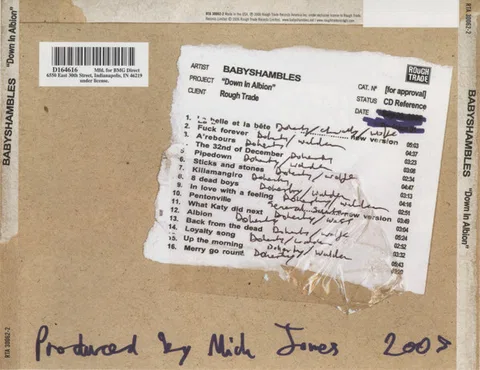 RTA 30062-2
BABYSHAMBLES "Down In Albion"
D164616
Mfd. for BMG Direct
6550 East 30th Street, Indianapolis, IN 46219
under license.
ROUGH TRADE
ARTIST BABYSHAMBLES
PROJECT "Down In Albion"
CLIENT Rough Trade
CAT. Nº [for approval]
STATUS CD Reference
DATE
1. La belle et la bête Doherty/ /Wolfe 05:03
2. Fuck forever Doherty/Walden New version 04:37
3. A'rebours Doherty/Walden 03:23
4. The 32nd of December Doherty 03:08
5. Pipedown Doherty/Walden 02:34
6. Sticks and stones Doherty/Wolfe 04:47
7. Killamangiro Doherty 03:13
8. 8 dead boys Doherty/Walden 04:16
9. In love with a feeling Doherty/Walden 02:51
10. Pentonville General Santana 03:49
11. What Katy did next Doherty New version 03:04
12. Albion Doherty 05:24
13. Back from the dead Doherty/Wolfe 02:52
14. Loyalty song Doherty/Walden 03:32
15. Up the morning Doherty/Walden 05:43
16. Merry go round Doherty/Walden
Produced by Mick Jones 2005
BABYSHAMBLES "Down In Albion"
RTA 30062-2